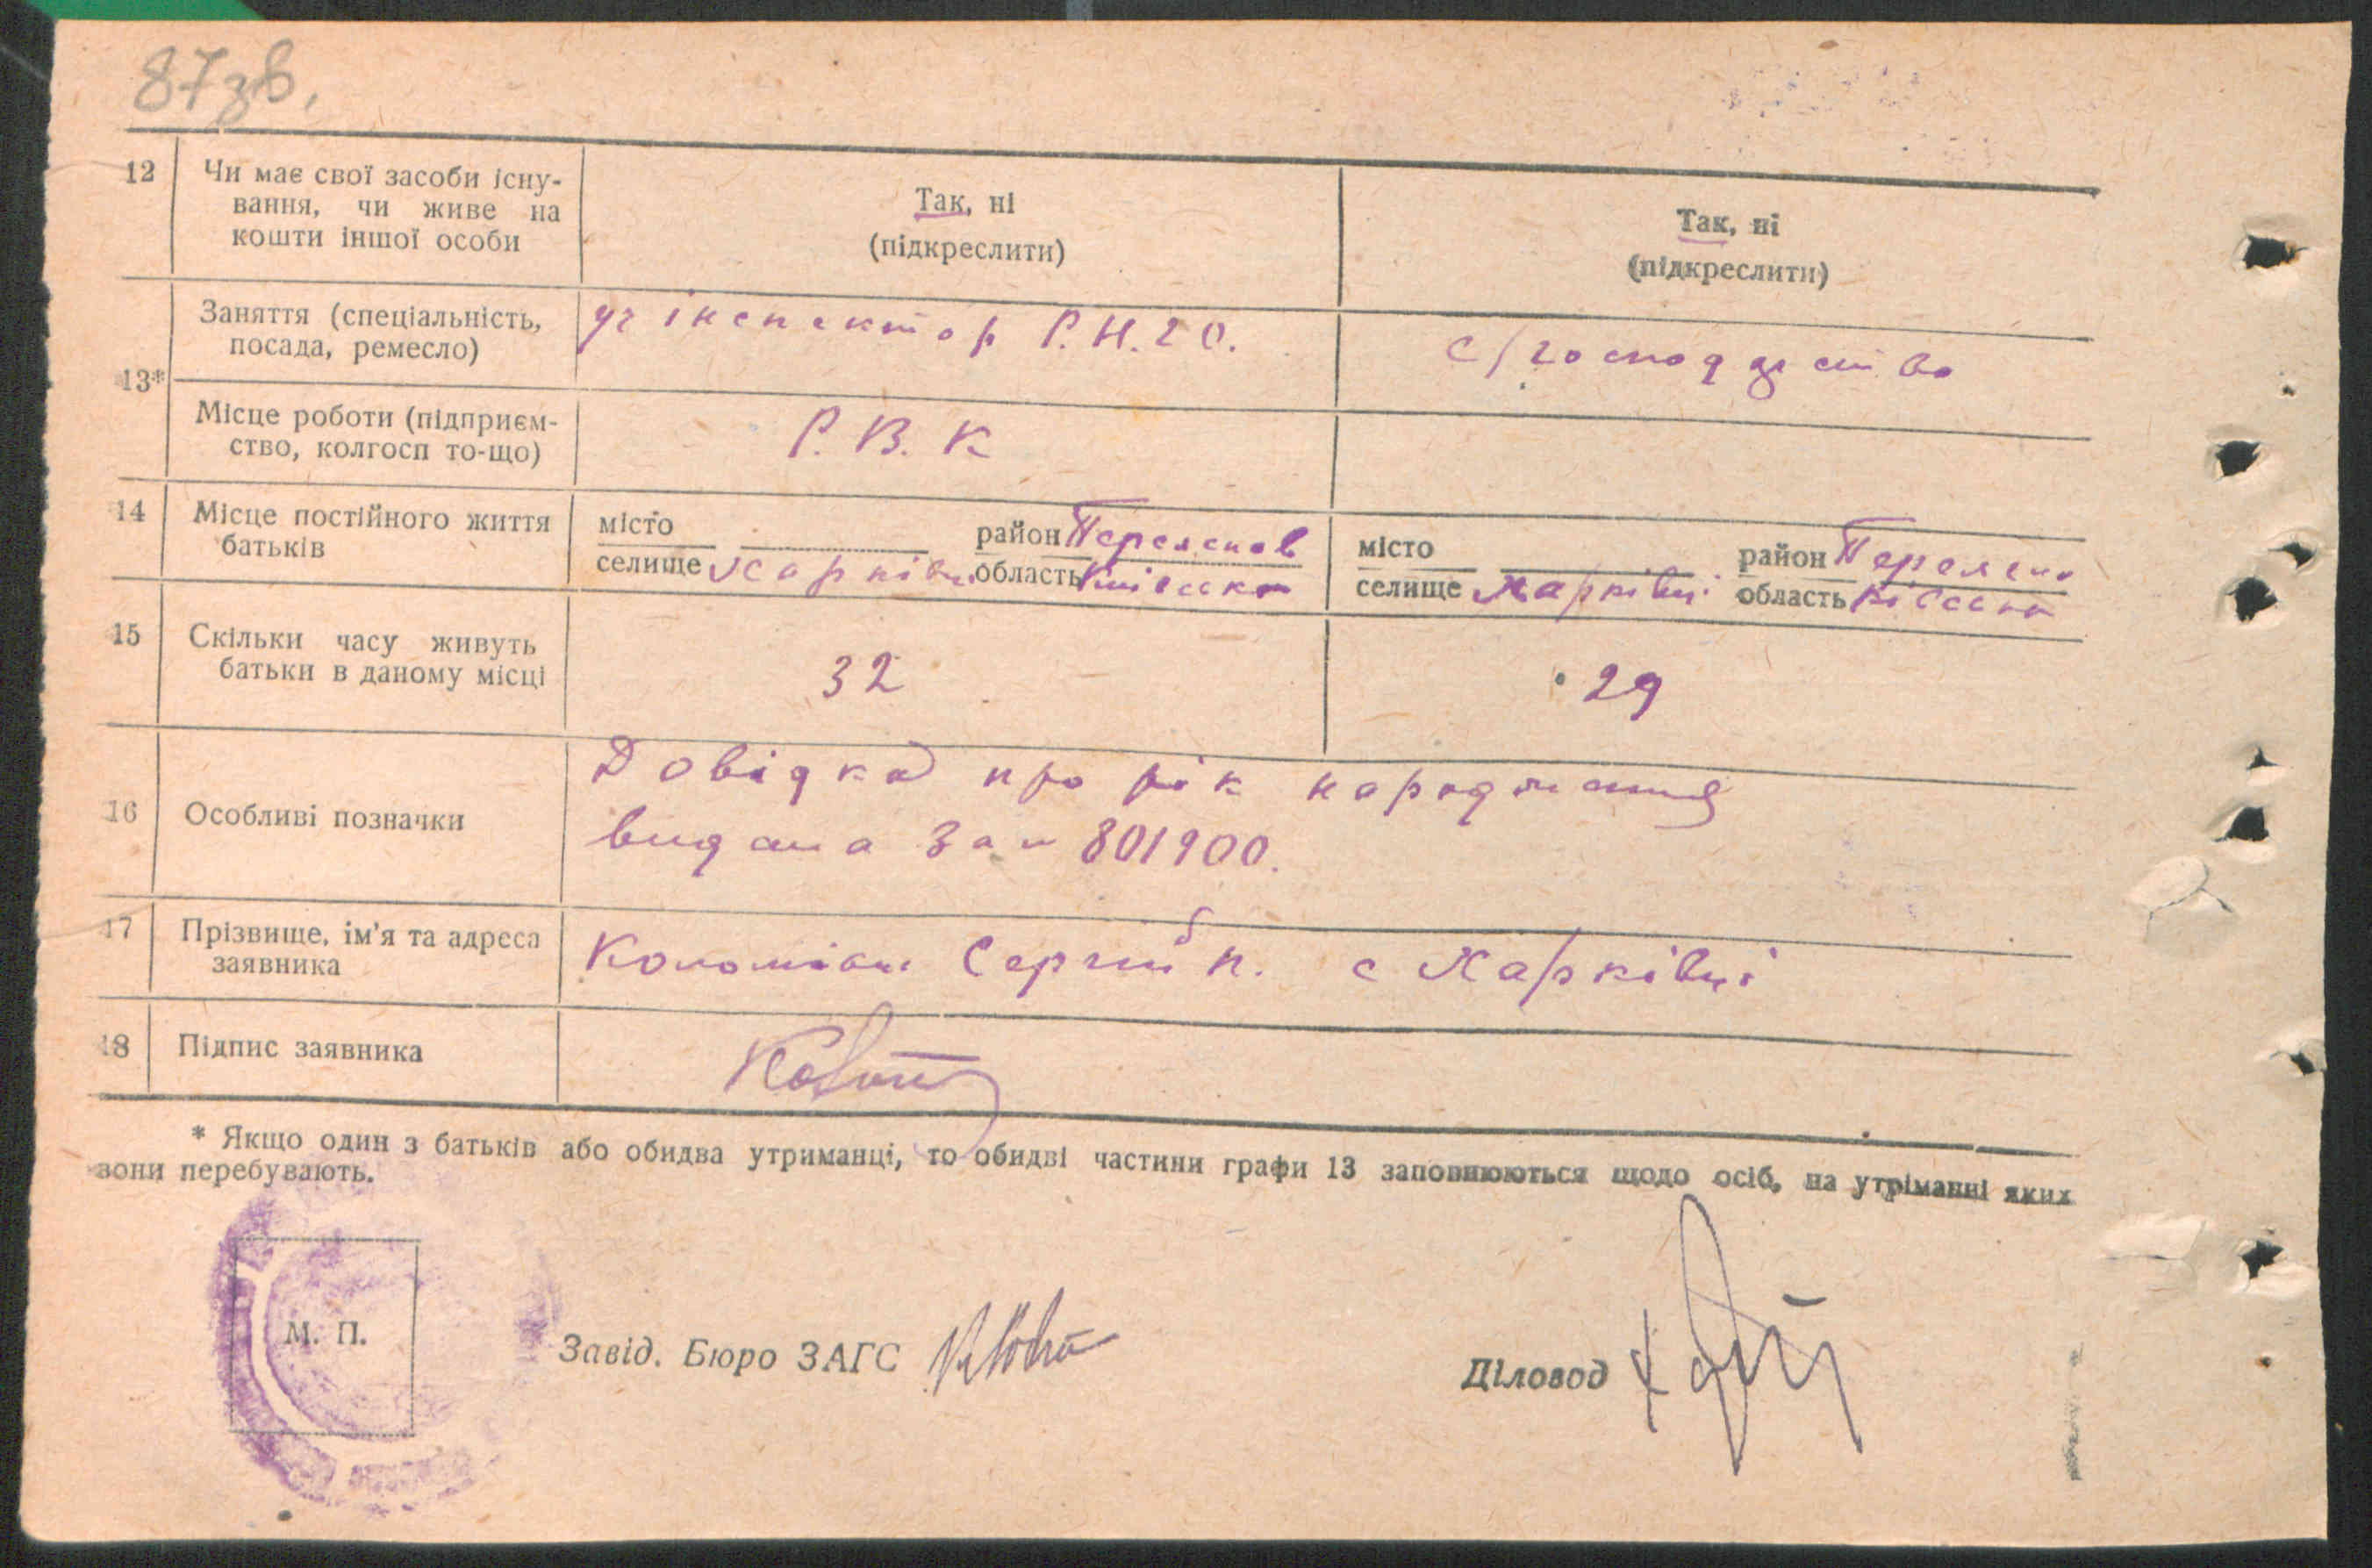 87зв.
12 Чи має свої засоби існу-
вання, чи живе на
кошти іншої особи
Так, ні
(підкреслити)
Так, ні
(підкреслити)
13*
Заняття (спеціальність,
посада, ремесло)
інспектор Р.Н.Г.О.
с/господарство
Місце роботи (підприєм-
ство, колгосп то-що)
Р.В.К
14 Місце постійного життя
батьків
місто
селище Харківці
район Переяслов
область Київська
місто
селище Харківці
район Переясл
область
15 Скільки часу живуть
батьки в даному місці
32
29
16 Особливі позначки
Довідка про рік народження
видана за № 801900.
17 Прізвище, ім'я та адреса
заявника
Коломієць Сергій П. с Харківці
18 Підпис заявника
* Якщо один з батьків або обидва утриманці, то обидві частини графи 13 заповнюються щодо осіб, на утріманні яких
вони перебувають.
М. П.
Завід. Бюро ЗАГС
Діловод